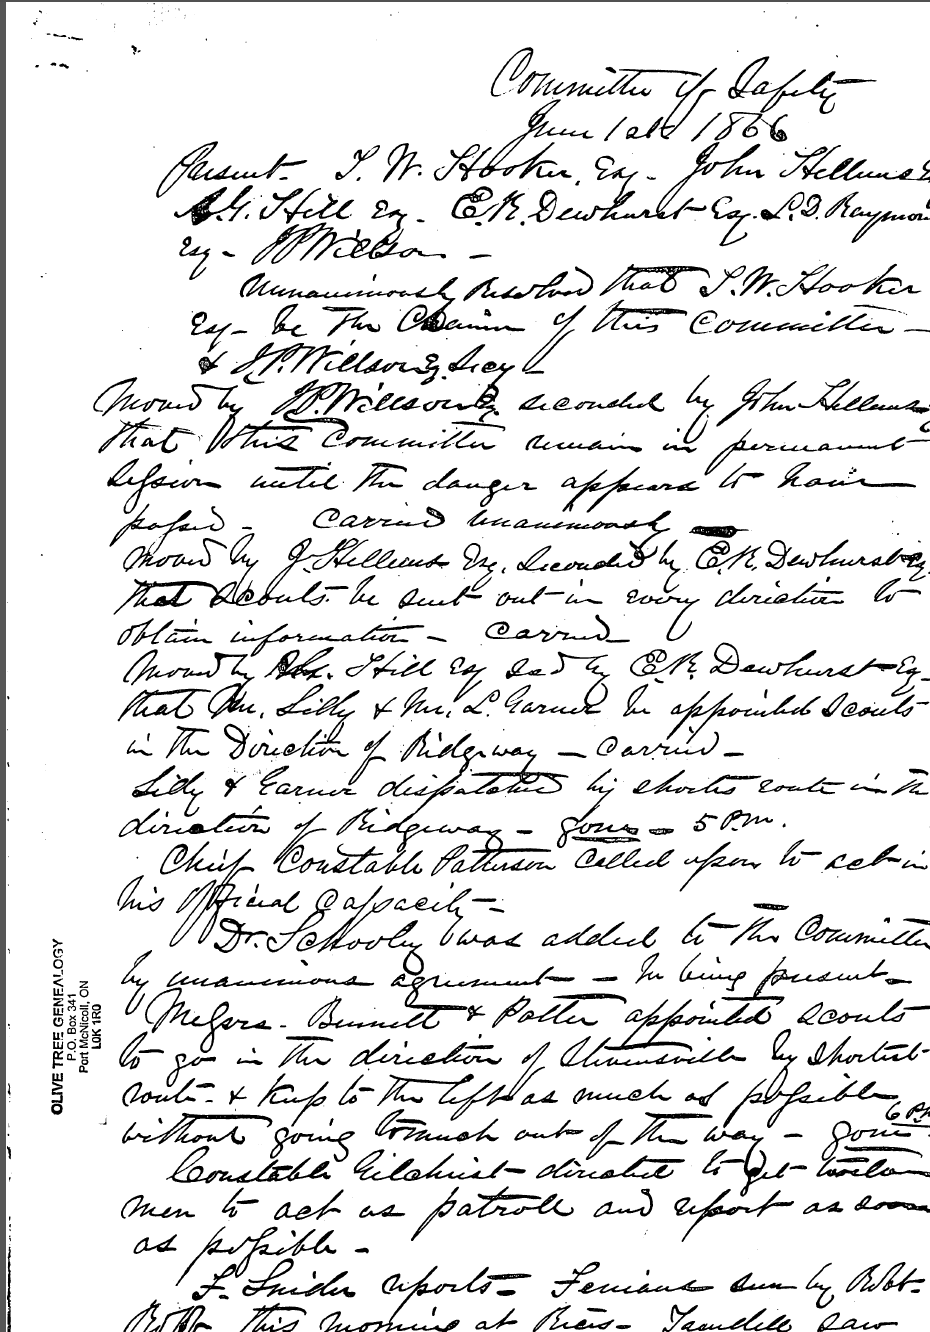 Committee of Safety
June 1st 1866
Present - T. W. Hooker, Esq - John Hellems
Hill Esq - E.R. Dewhurst Esq. L.D. Raymon
Esq - J.P. Willson -
Unanimously Resolved that T. W. Hooker
Esq - be The of this Committee -
& J.P. Willson Esq. Secy -
Moved by J.P. Willson Esq seconded by John Hellems
that this Committee remain in permanent
session until the danger appears to have
passed - Carried unanimously
Moved by J. Hellems Esq. Seconded by E.R. Dewhurst Esq.
that Scouts be sent out in every direction to
obtain information - Carried
Moved by Hill Esq Scd by E.R. Dewhurst Esq -
that Mr. Lilly & Mr. L. Garner be appointed Scouts
in the Direction of Ridgeway - Carried -
Lilly & Garner dispatched by shortes route in the
direction of Ridgeway - gone - 5 P.M.
Chief Constable Patterson called upon to act in
his Official Capacity -
Dr. Schooley was added to the Committee
by unanimous agreement - he being present -
Messrs. Bennett & Potter appointed scouts
to go in the direction of Stevensville by shortest
route - & Keep to the left as much as possible
6 P.M
without going to much out of the way - gone -
Constable Gilchrist directed to get twelve
men to act as patroll and report as soon
as possible -
F. Snider reports - Fenians seen by Robt -
this morning at saw
OLIVE TREE GENEALOGY
P.O. Box 341
Port McNicoll, ON
L0K 1R0